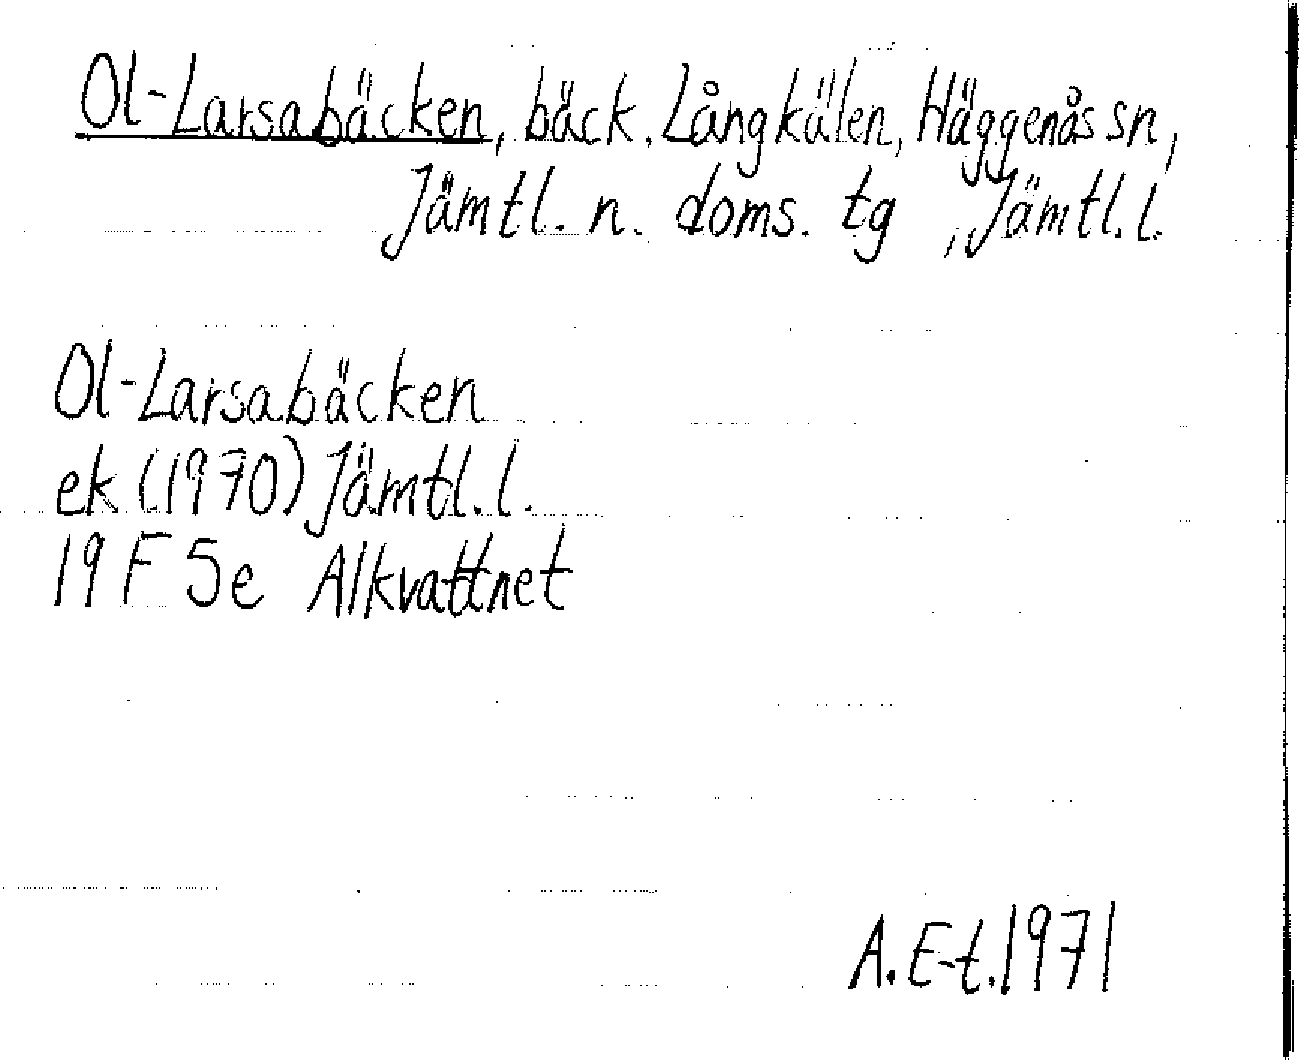 Ol-Larsabäcken, bäck. Långkälen, Häggenås sn,
Jämtl. n. doms. tg , Jämtl. l.
Ol-Larsabäcken
ek (1970) Jämtl. l.
19 F 5e Alkvattnet
A. E-t. 1971